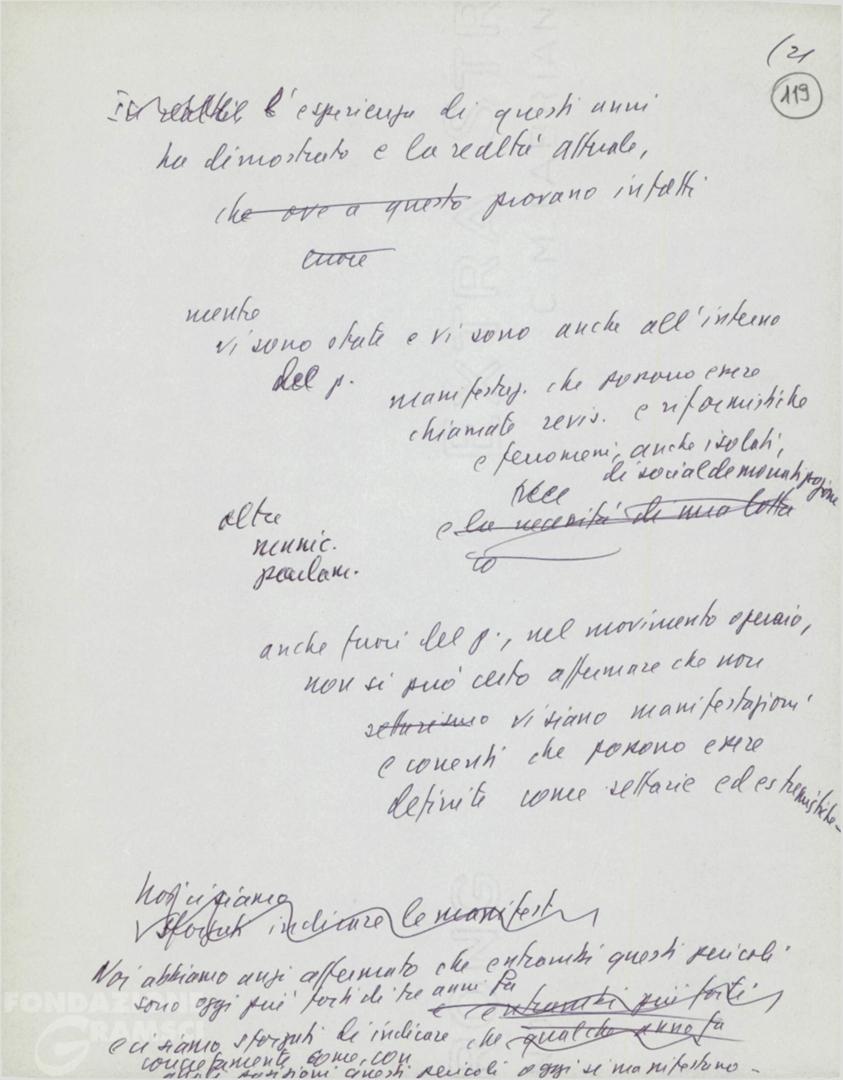 (21
119
l'esperienza di questi anni
ha dimostrato e la realtà attuale,
che ove a questo provano infatti
mentre
vi sono state e vi sono anche all'interno
del p.
manifestaz. che possono essere
chiamate revis. e riformistiche
e fenomeni, anche isolati,
di socialdemocratizzazione
oltre
e la necessità di una lotta
munic.
parlam.
anche fuori del p., nel movimento operaio,
non si può certo affermare che non
settarismo vi siano manifestazioni
e correnti che possono essere
definite come settarie ed estremistiche -
Noi ci siamo
sforzati indicare le manifest
Noi abbiamo anzi affermato che entrambi questi pericoli
sono oggi più forti di tre anni fa
e entrambi più forti
e ci siamo sforzati di indicare che qualche anno fa
concretamente come, con
questi pericoli oggi si manifestano -
FONDAZIONE
GRAMSCI